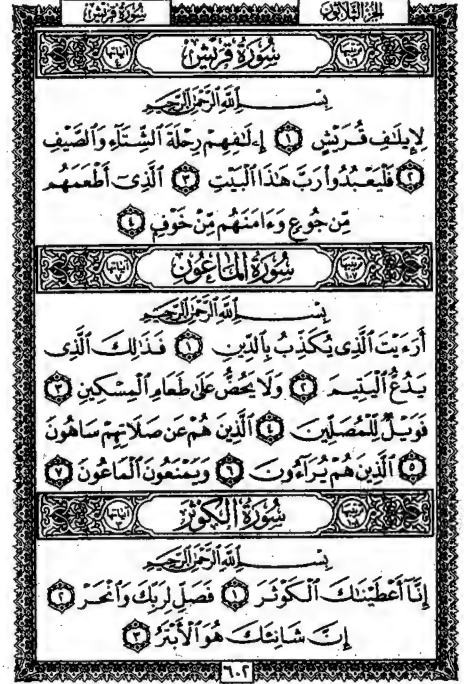 سُورَةُ قُرَيْشٍ الجُزْءُ الثَّلَاثُونَ
سُورَةُ قُرَيْشٍ
بِسْمِ ٱللَّهِ ٱلرَّحْمَٰنِ ٱلرَّحِيمِ
لِإِيلَٰفِ قُرَيْشٍ ١ إِۦلَٰفِهِمْ رِحْلَةَ ٱلشِّتَآءِ وَٱلصَّيْفِ
٢ فَلْيَعْبُدُوا۟ رَبَّ هَٰذَا ٱلْبَيْتِ ٣ ٱلَّذِىٓ أَطْعَمَهُم
مِّن جُوعٍ وَءَامَنَهُم مِّنْ خَوْفٍۭ ٤
سُورَةُ المَاعُونِ
بِسْمِ ٱللَّهِ ٱلرَّحْمَٰنِ ٱلرَّحِيمِ
أَرَءَيْتَ ٱلَّذِى يُكَذِّبُ بِٱلدِّينِ ١ فَذَٰلِكَ ٱلَّذِى
يَدُعُّ ٱلْيَتِيمَ ٢ وَلَا يَحُضُّ عَلَىٰ طَعَامِ ٱلْمِسْكِينِ ٣
فَوَيْلٌ لِّلْمُصَلِّينَ ٤ ٱلَّذِينَ هُمْ عَن صَلَاتِهِمْ سَاهُونَ
٥ ٱلَّذِينَ هُمْ يُرَآءُونَ ٦ وَيَمْنَعُونَ ٱلْمَاعُونَ ٧
سُورَةُ الكَوْثَرِ
بِسْمِ ٱللَّهِ ٱلرَّحْمَٰنِ ٱلرَّحِيمِ
إِنَّآ أَعْطَيْنَٰكَ ٱلْكَوْثَرَ ١ فَصَلِّ لِرَبِّكَ وَٱنْحَرْ ٢
إِنَّ شَانِئَكَ هُوَ ٱلْأَبْتَرُ ٣
٦٠٢